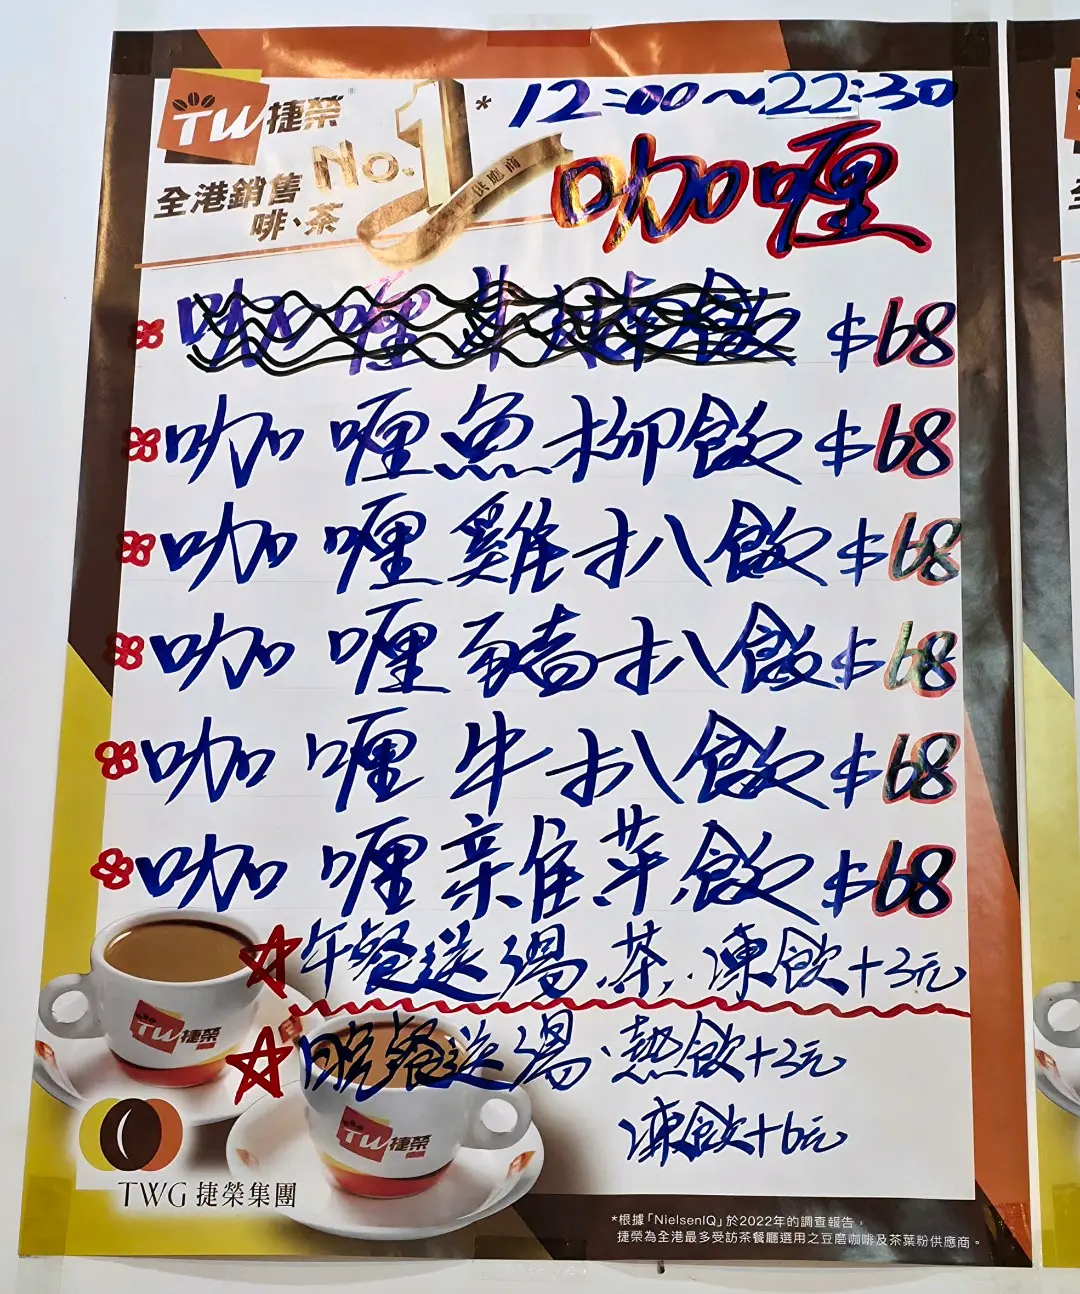 TW捷榮®
No.1*
供應商
全港銷售
啡、茶
12:00~22:30
咖喱
咖喱 $68
咖喱魚柳飯 $68
咖喱雞扒飯 $68
咖喱豬扒飯 $68
咖喱牛扒飯 $68
咖喱雜菜飯 $68
午餐送湯.茶.凍飲+3元
晚餐送湯.熱飲+3元
凍飲+6元
TW捷榮
TW捷榮
TWG 捷榮集團
*根據「NielsenIQ」於2022年的調查報告，
捷榮為全港最多受訪茶餐廳選用之豆磨咖啡及茶葉粉供應商。